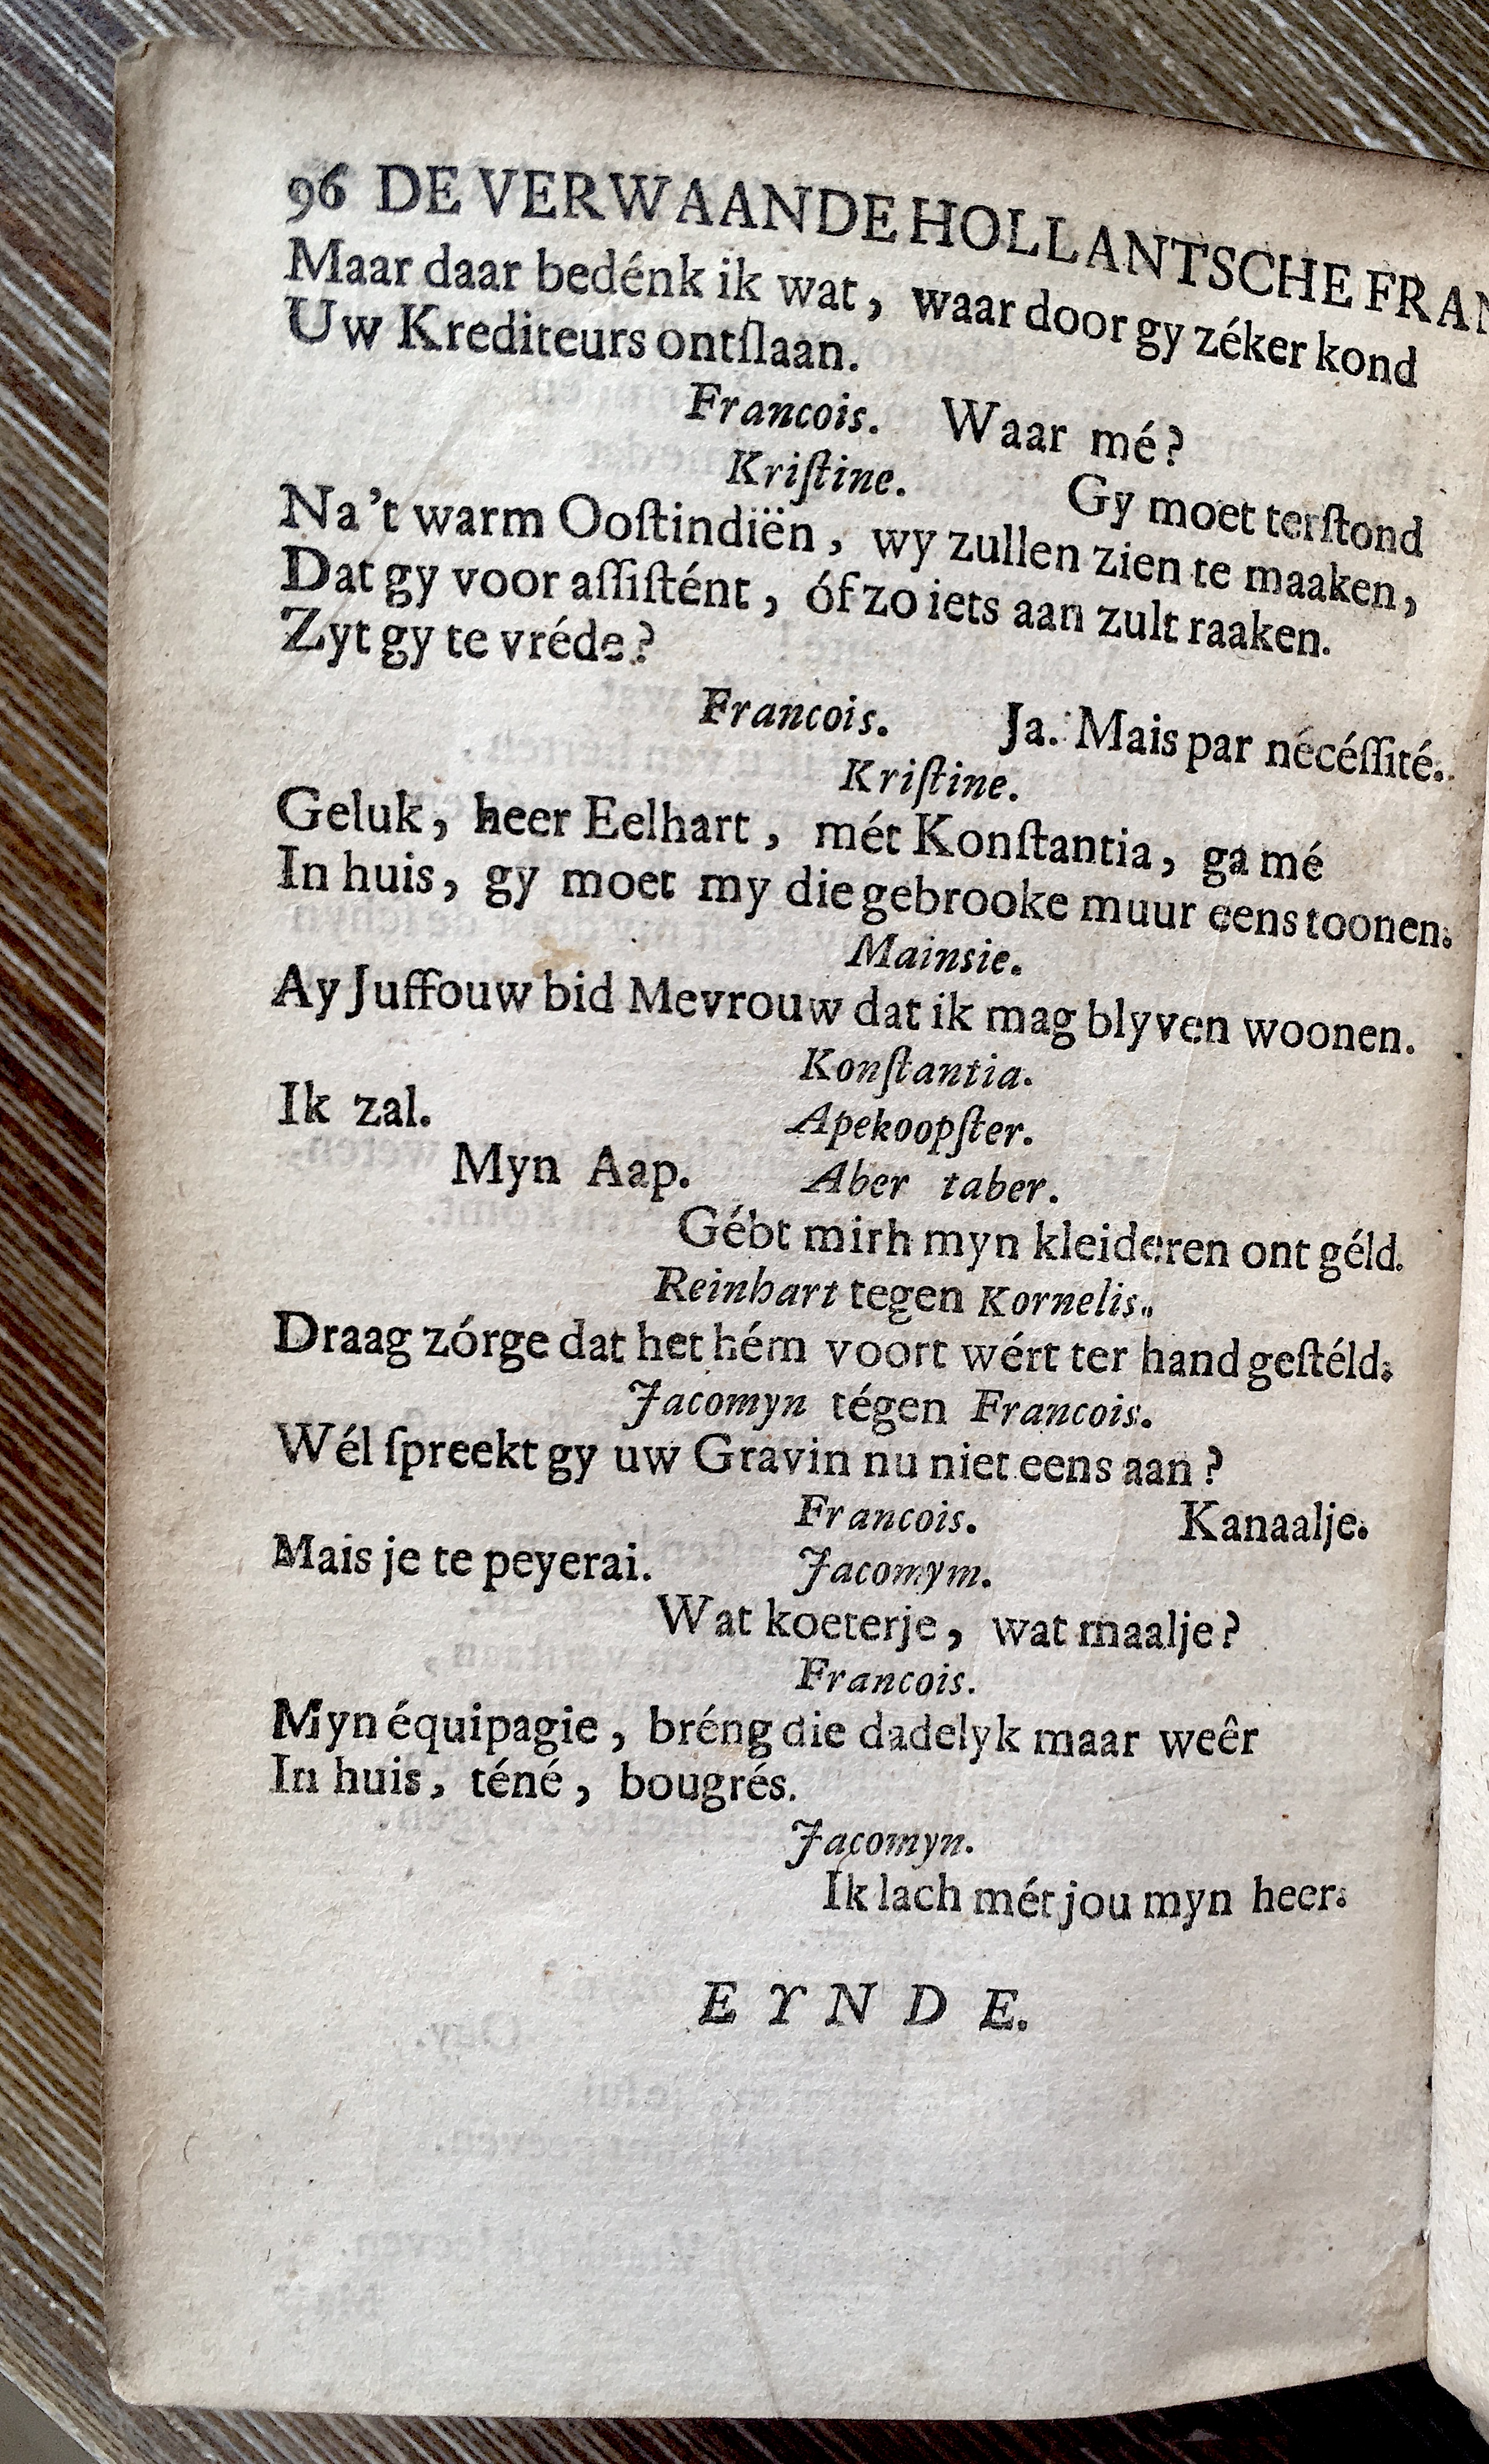 96 DE VERWAANDE HOLLANTSCHE FRAN
Maar daar bedénk ik wat, waar door gy zéker kond
Uw Krediteurs ontſlaan.
Francois. Waar mé?
Kriſtine. Gy moet terſtond
Na't warm Ooſtindiën, wy zullen zien te maaken,
Dat gy voor aſſiſtént, óf zo iets aan zult raaken.
Zyt gy te vréde?
Francois. Ja. Mais par nécéſſité.
Kriſtine.
Geluk, heer Eelhart, mét Konſtantia, ga mé
In huis, gy moet my die gebrooke muur eens toonen.
Mainsie.
Ay Juffouw bid Mevrouw dat ik mag blyven woonen.
Konſtantia.
Ik zal.
Apekoopſter.
Myn Aap.
Aber taber.
Gébt mirh myn kleideren ont géld.
Reinhart tegen Kornelis.
Draag zórge dat het hém voort wért ter hand geſtéld.
Jacomyn tégen Francois.
Wél ſpreekt gy uw Gravin nu niet eens aan?
Francois. Kanaalje.
Mais je te peyerai.
Jacomym.
Wat koeterje, wat maalje?
Francois.
Myn équipagie, bréng die dadelyk maar weêr
In huis, téné, bougrés.
Jacomyn.
Ik lach mét jou myn heer.
EYNDE.